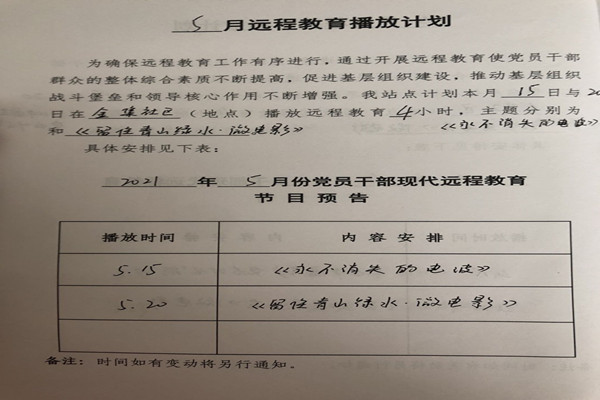 5月远程教育播放计划
为确保远程教育工作有序进行，通过开展远程教育使党员干部
群众的整体综合素质不断提高，促进基层组织建设，推动基层组织
战斗堡垒和领导核心作用不断增强。我站点计划本月15日与20
日在金集社区（地点）播放远程教育4小时，主题分别为
和《留住青山绿水·微电影》《永不消失的电波》
具体安排见下表：
2021年5月份党员干部现代远程教育
节目预告
播放时间 内容安排
5.15 《永不消失的电波》
5.20 《留住青山绿水·微电影》
备注：时间如有变动将另行通知。